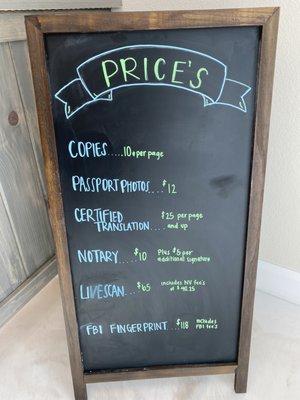 PRICE'S
COPIES.....10¢ per page
PASSPORT PHOTOS....$12
CERTIFIED $25 per page
TRANSLATION.... and up
NOTARY.....$10 Plus $5 per additional signature
LIVESCAN...$65 includes NV fee's of $40.25
FBI FINGERPRINT..$118 includes FBI fee's